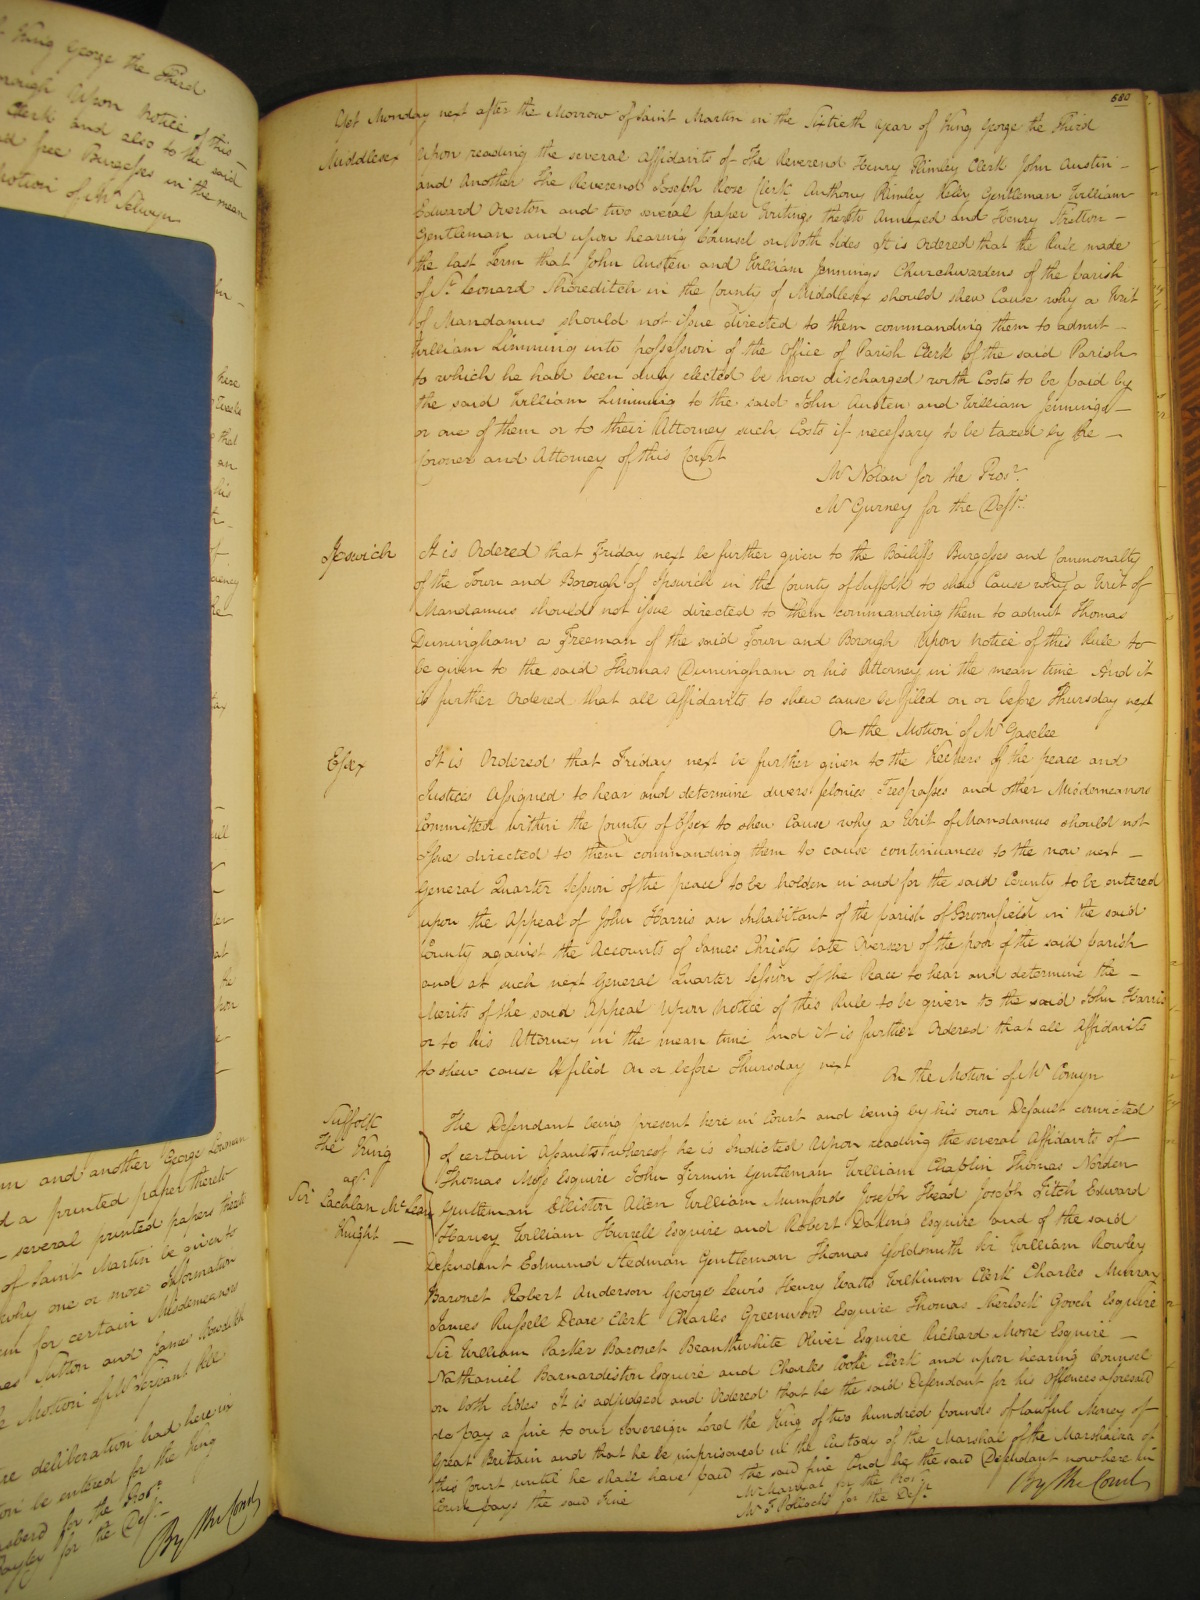 of King George the Third
Upon Notice of this
Clerk and also to the said
free Burgesses in the mean
Motion of Mr Selwyn
580
Yet Monday next after the Morrow of Saint Martin in the Sixtieth year of King George the Third
Middlesex
Upon reading the several Affidavits of The Reverend Henry Plimley Clerk John Austin
and Another The Reverend Joseph Rose Clerk Anthony Plimley Kelly Gentleman William
Edward Overton and two several paper Writings thereto Annexed and Henry Stretton
Gentleman and upon hearing Counsel on both sides It is ordered that the Rule made
the last Term that John Austen and William Jennings Churchwardens of the parish
of St Leonard Shoreditch in the County of Middlesex should shew Cause why a Writ
of Mandamus should not issue directed to them commanding them to admit
William Limming into possession of the Office of Parish Clerk of the said Parish
to which he had been duly elected be now discharged with Costs to be paid by
the said William Limming to the said John Austen and William Jennings
or one of them or to their Attorney such Costs if necessary to be taxed by the
Coroner and Attorney of this Court
Mr Nolan for the Prosr.
Mr Gurney for the Defts.
Ipswich
It is Ordered that Friday next be further given to the Bailiffs Burgesses and Commonalty
of the Town and Borough of Ipswich in the County of Suffolk to shew Cause why a Writ of
Mandamus should not issue directed to them commanding them to admit Thomas
Duningham a Freeman of the said Town and Borough Upon Notice of this Rule to
be given to the said Thomas Duningham or his Attorney in the mean time And it
is further Ordered that all Affidavits to shew cause be filed on or before Thursday next
On the Motion of Mr Gaselee
Essex
It is Ordered that Friday next be further given to the Keepers of the peace and
Justices Assigned to hear and determine divers felonies Trespasses and other Misdemeanors
Committed within the County of Essex to shew Cause why a Writ of Mandamus should not
issue directed to them commanding them to cause continuances to the now next
General Quarter Session of the peace to be holden in and for the said County to be entered
upon the Appeal of John Harris an inhabitant of the parish of Broomfield in the said
County against the Accounts of James Christy late Overseer of the poor of the said parish
and at such next General Quarter Session of the Peace to hear and determine the
Merits of the said Appeal Upon Notice of this Rule to be given to the said John Harris
or to his Attorney in the mean time And it is further Ordered that all Affidavits
to shew cause be filed on or before Thursday next
On the Motion of Mr Comyn
Suffolk
The King
agt.
Sir Lachlan McLean
Knight
The Defendant being present here in Court and being by his own Default convicted
of certain Assaults whereof he is Indicted Upon reading the several Affidavits of
Thomas Moss Esquire John Firmin Gentleman William Chaplin Thomas Norden
Gentleman Elliston Allen William Mumford Joseph Head Joseph Fitch Edward
Harvey William Hurrell Esquire and Robert Dalling Esquire and of the said
Defendant Edmund Stedman Gentleman Thomas Goldsmith Sir William Rowley
Baronet Robert Anderson George Lewis Henry Watts Wilkinson Clerk Charles Murray
James Russell Deare Clerk Charles Greenwood Esquire Thomas Sherlock Gooch Esquire
Sir William Parker Baronet Beanthwhite Oliver Esquire Richard Moore Esquire
Nathaniel Barnardiston Esquire and Charles Cooke Clerk and upon hearing Counsel
on both sides It is adjudged and Ordered that he the said Defendant for his Offences aforesaid
do pay a fine to our Sovereign Lord the King of two hundred pounds of lawful Money of
Great Britain and that he be imprisoned in the Custody of the Marshal of the Marshalsea of
this Court until he shall have paid the said fine And he the said Defendant now here in
Court pays the said Fine
Mr Marryat for the Prosr.
Mr F Pollock for the Deft.
By the Court
and another George
a printed paper thereto
several printed papers thereto
of Saint Martin be given to
why one or more Information
for certain Misdemeanors
Sutton and James
Motion of Mr Serjeant
deliberation had here in
be entered for the King
for the Prosr.
for the Deft.
By the Court